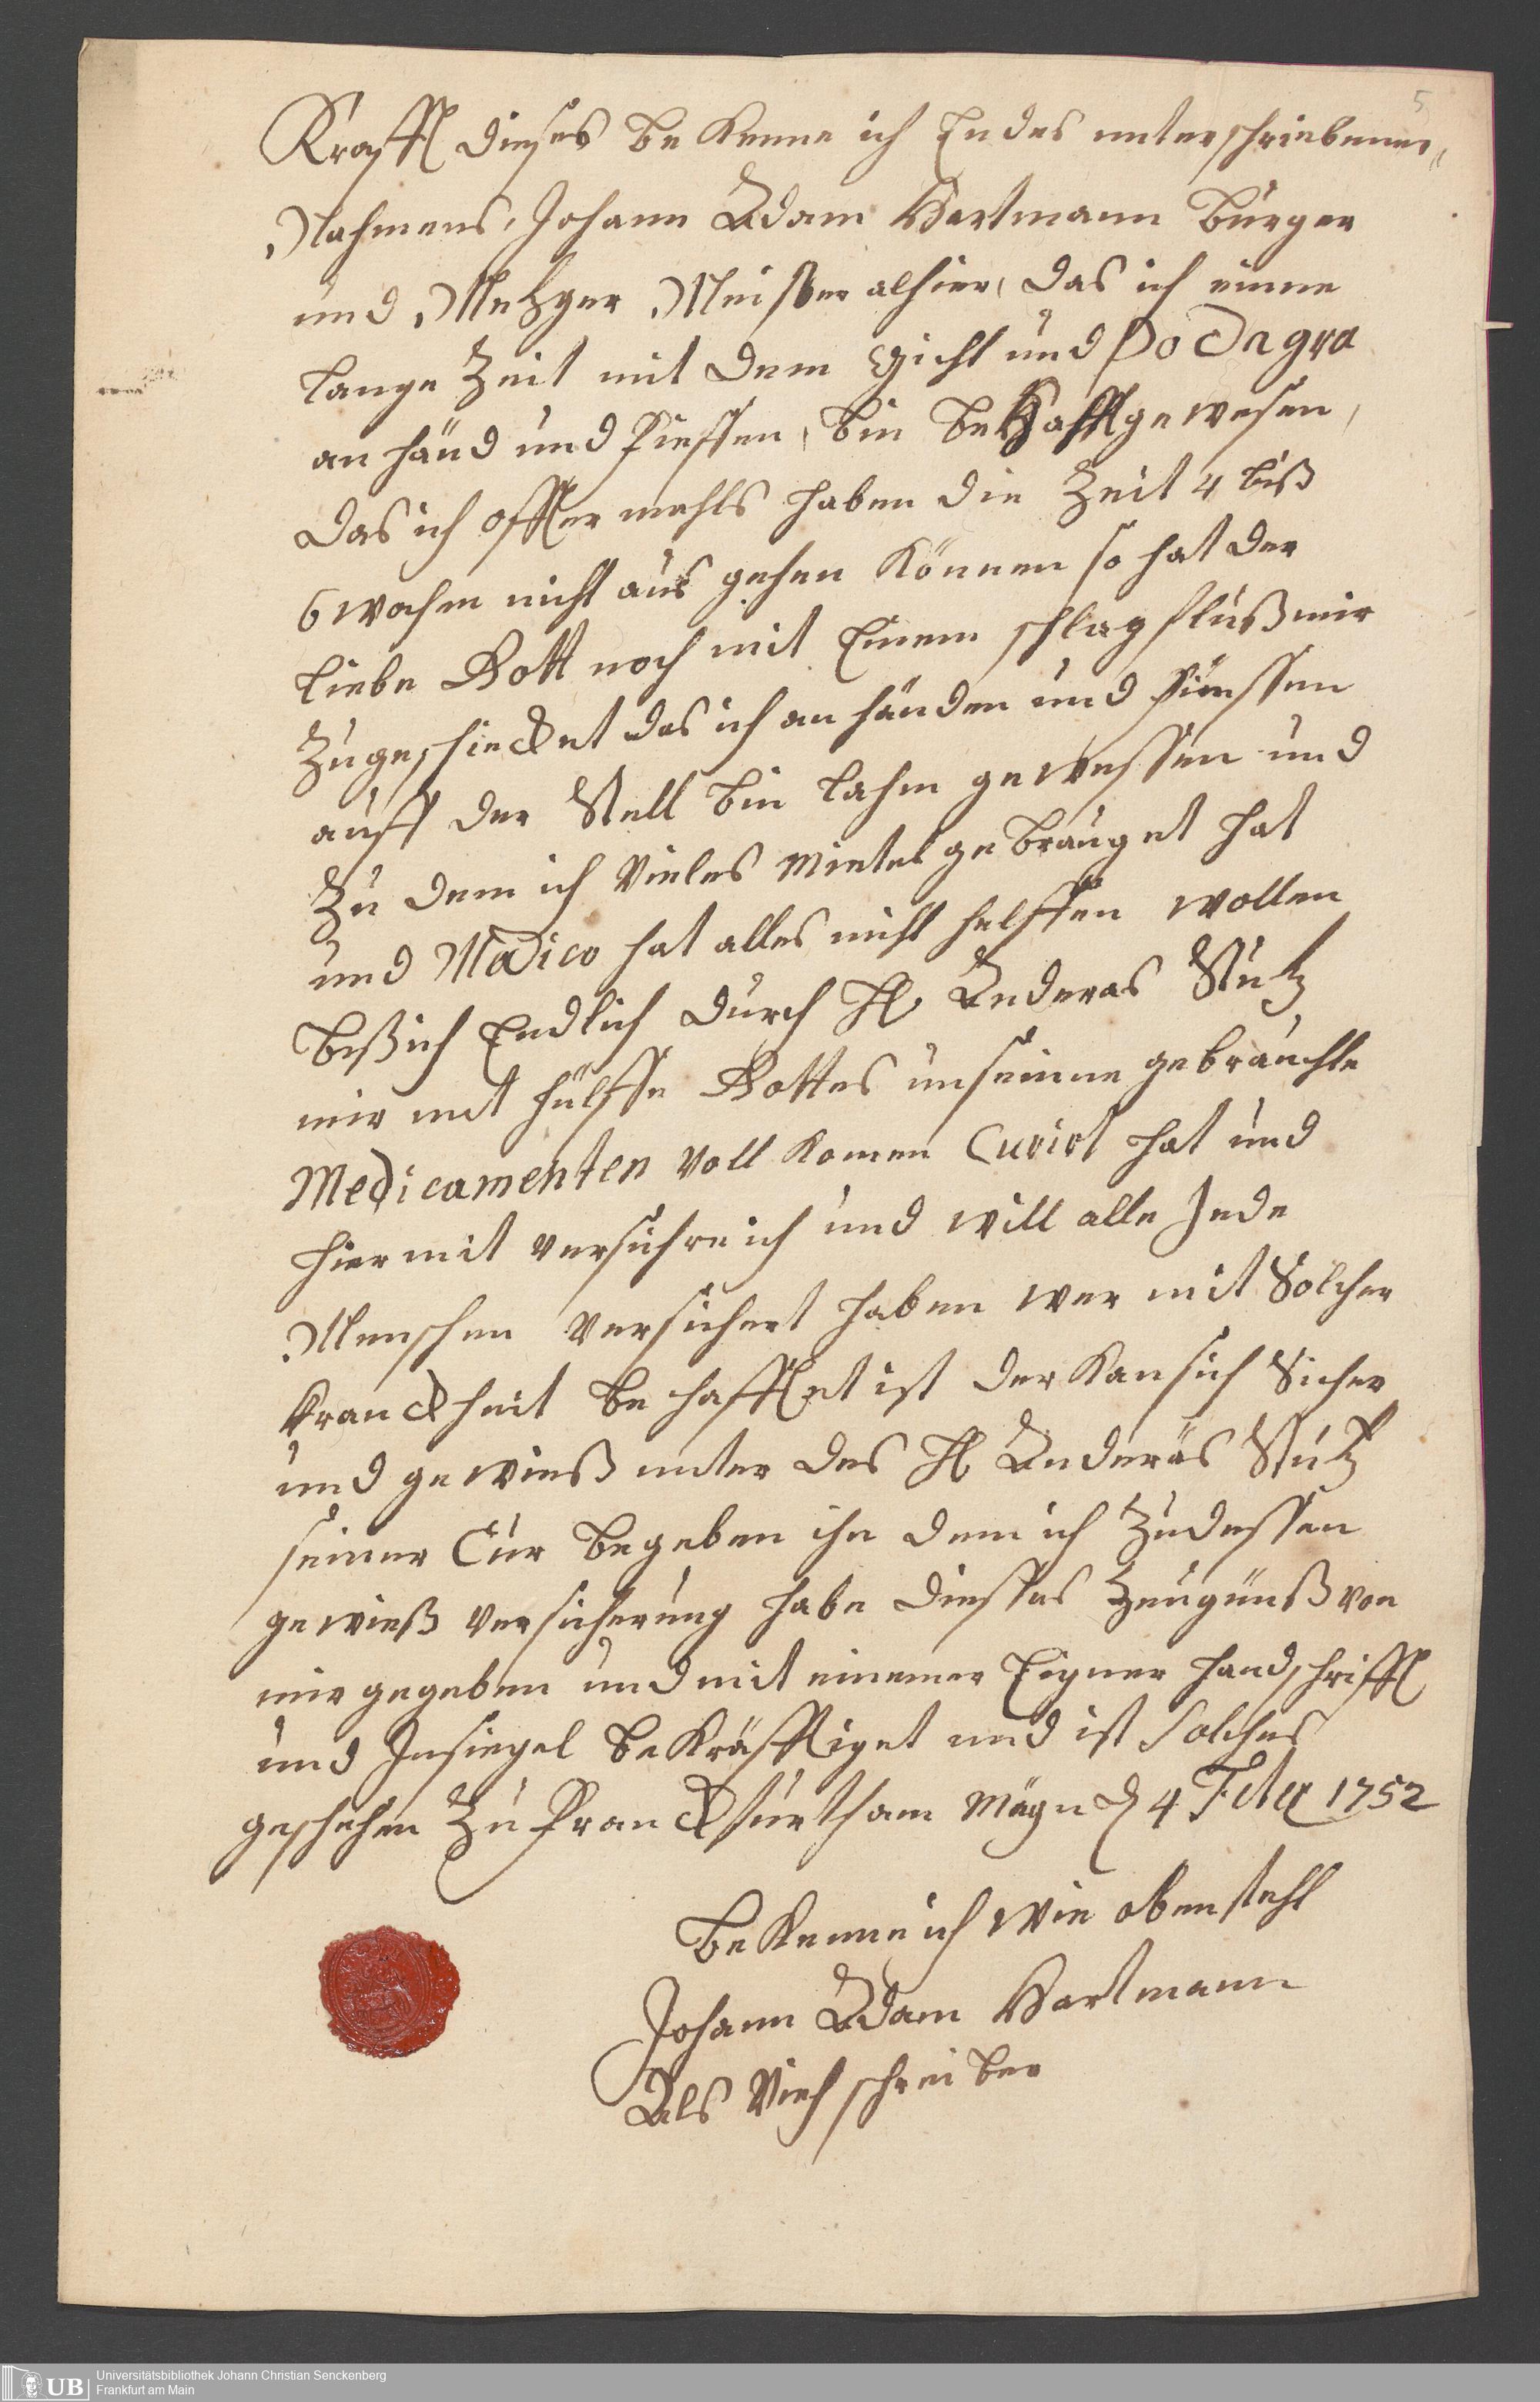 5
Krafft dieses be Kenne ich Endes unterschriebener
Nahmens, Johann Adam Hartmann Bürger
und Metzger Meister alhier, das ich eine
lange Zeit mit dem Gicht und Podagra
an händ und Fiessen, bin behafft gewesen,
das ich offter mahls haben die Zeit 4 biß
6 wochen nicht aus gehen Können so hat der
liebe Gott noch mit Einem schlag fluß mir
Zugeschiecket das ich an händen und Füessen
auff der Stell bin lahm gewessen und
Zu dem ich vieles Mietel gebrauget hat
und Madico hat alles nicht helffen wollen
biß ich Endlich durch H. Anderas Stutz
mir mit hülffe Gottes un seine gebrauchte
Medicamenten voll Komen Curirt hat und
hiermit versichre ich und will alle Jede
Menschen versichert haben wer mit Solcher
Kranckheit be hafftet ist der Kan sich Sicher
und gewieß unter des H Anderas Stutz
seiner Cur begeben ihn dem ich Zu dessen
gewieß versicherung habe diesses Zeugnuß von
mir gegeben und mit einemer Eigner handschrifft
und Insiegel be Kräfftiget und ist Solches
geschehen Zu Franckfurth am Mayn d 4 1752
be Kenne ich wie oben steht
Johann Adam Hartmann
Als Vieh schreiber
UB
Universitätsbibliothek Johann Christian Senckenberg
Frankfurt am Main